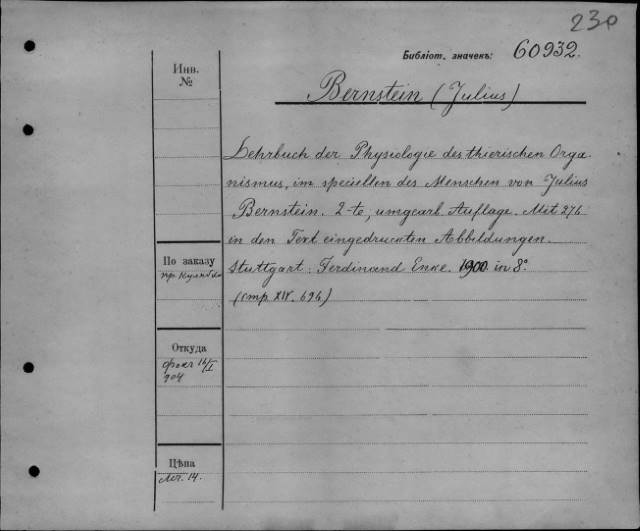 230
Библіот. значекъ: 60932.
Инв.
№
Bernstein (Julius)
Lehrbuch der Physiologie des thierischen Orga-
nismus, im speciellen des Menschen von Julius
Bernstein. 2-te, umgearb. Auflage. Mit 276
in den Text eingedruckten Abbildungen.
Stuttgart: Ferdinand Enke. 1900. in 8°
(стр XIV. 694)
По заказу
пр.
Откуда
904
Цѣна
14.